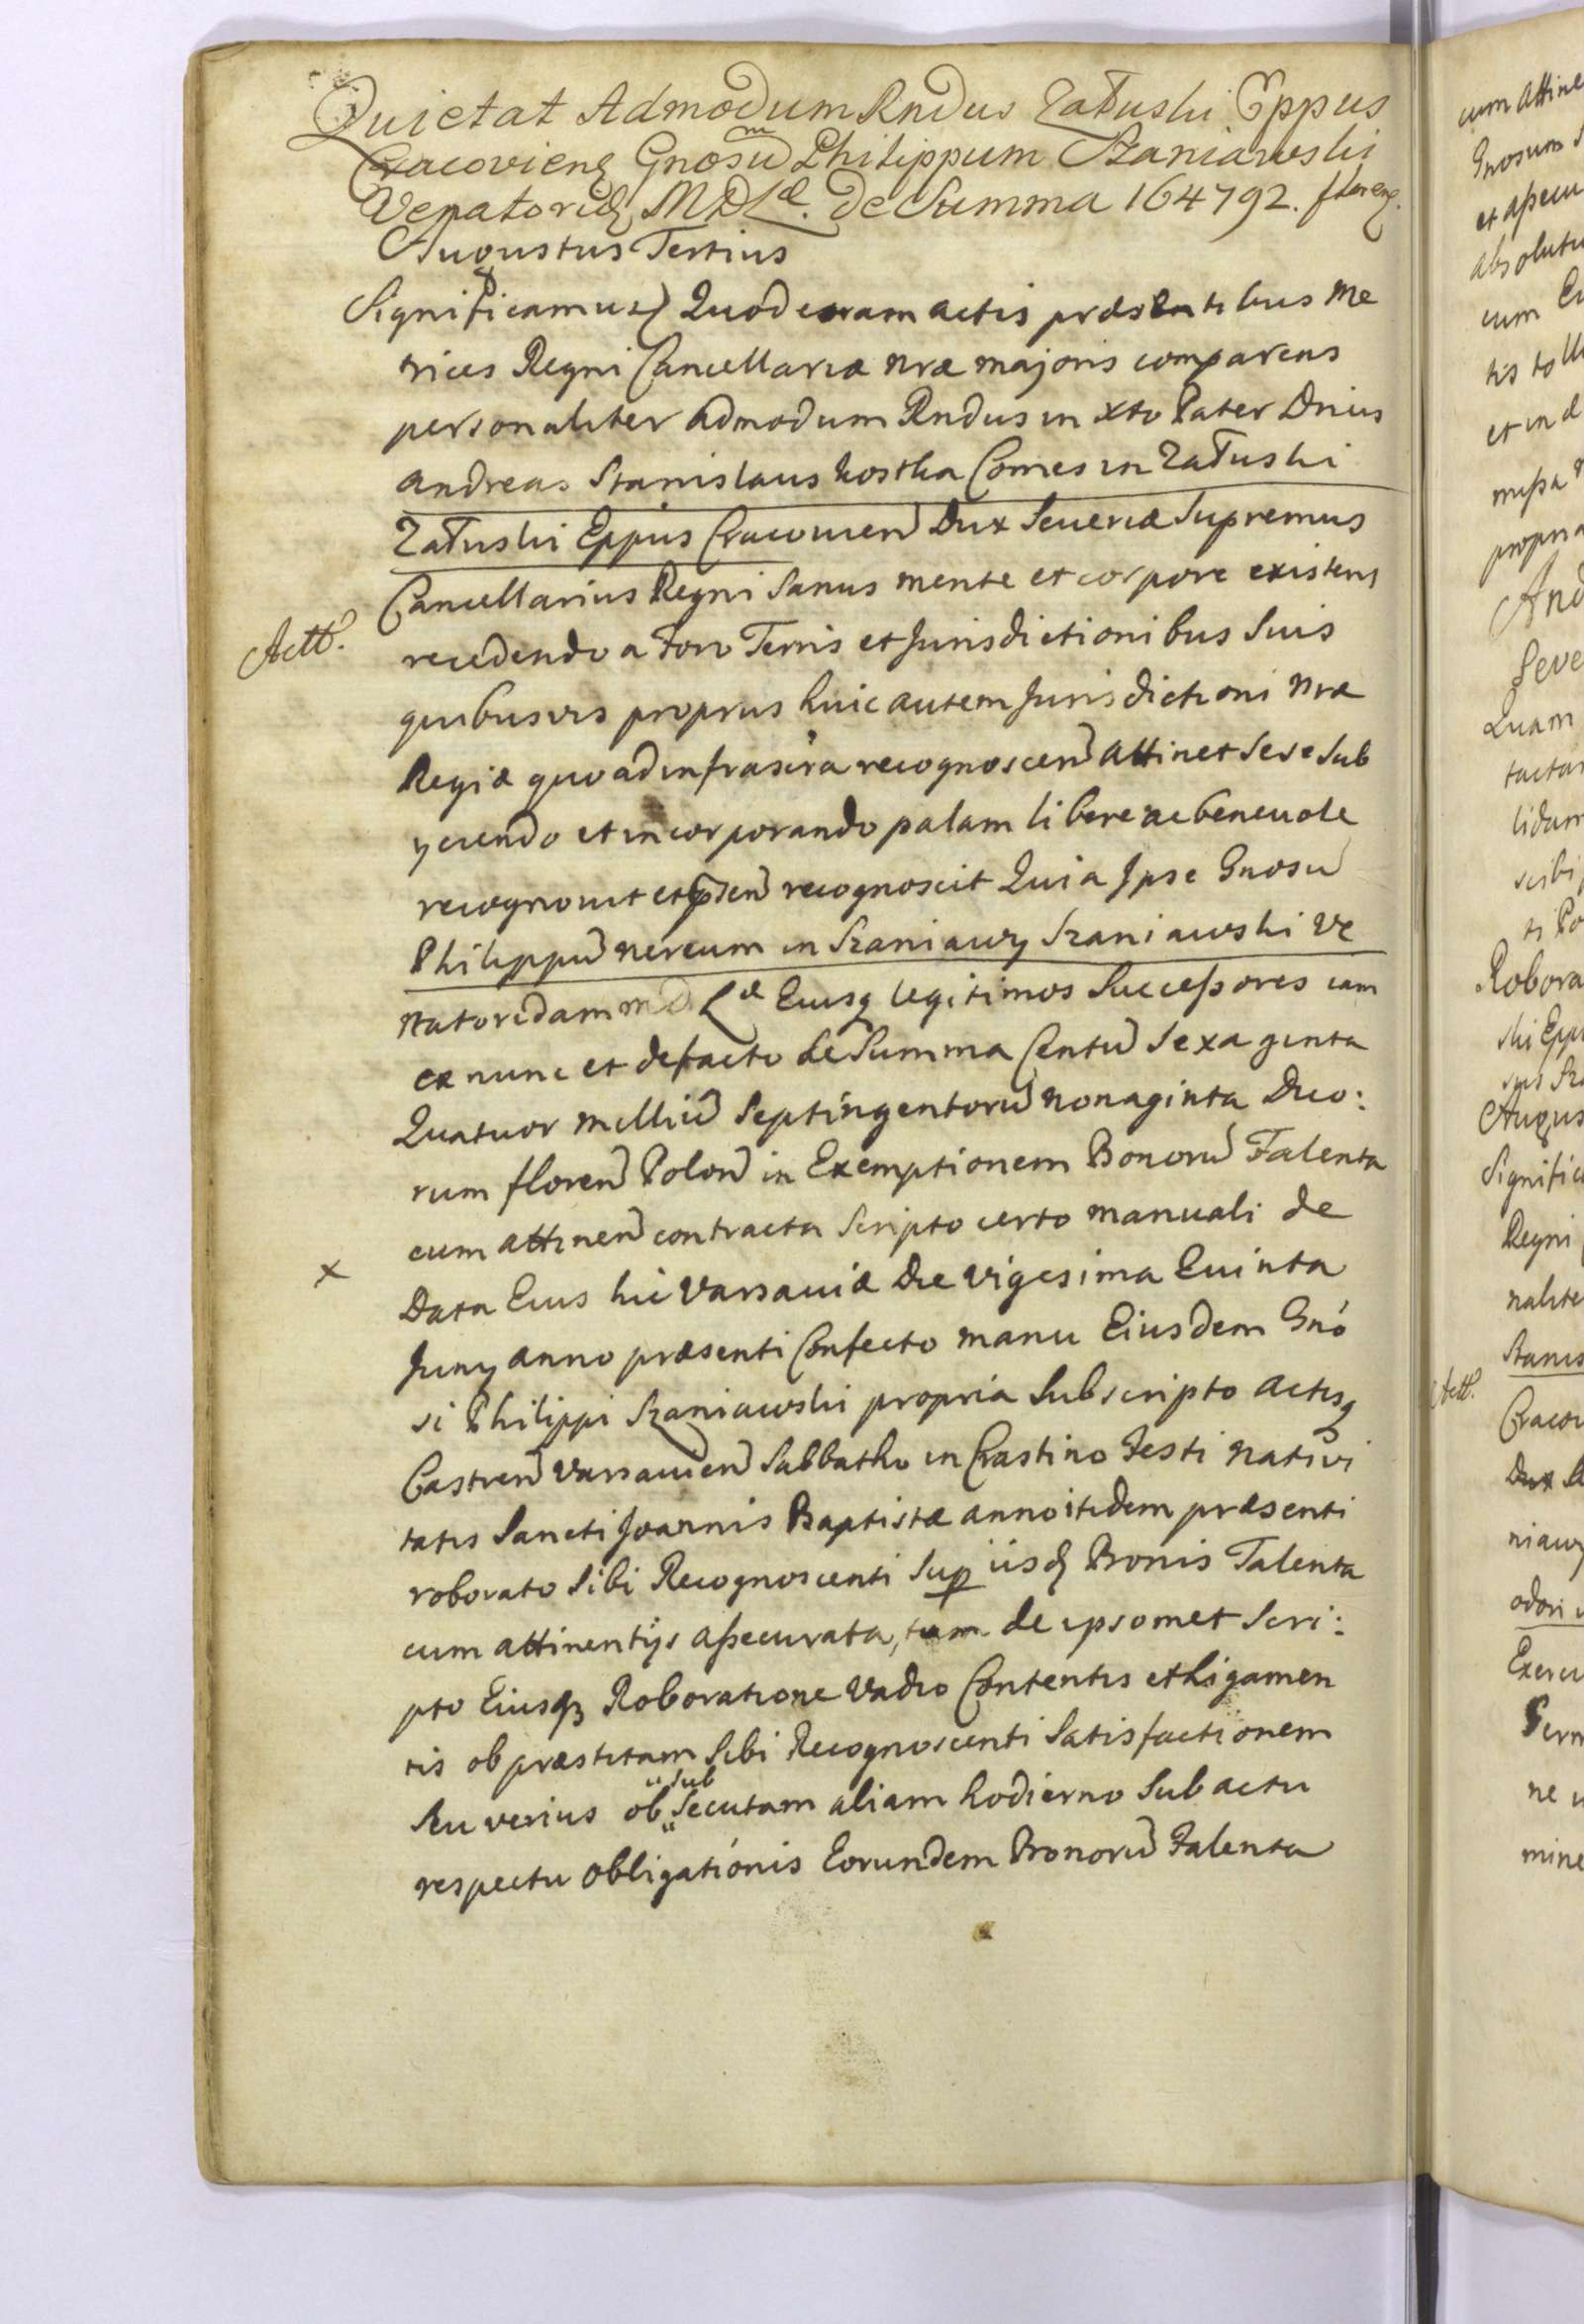 Quietat Admodum Rndus Załuski Eppus
Cracovienꝫ Gnosũm Philippum Szaniawski
Venatoridꝫ MDLæ. De Summa 164792. florenꝫ.
Augustus Tertius
Significamus Quod coram actis præsentibus Me
trices Regni Cancellariæ nræ majoris comparens
personaliter admodum Rndus in Xto Pater Dnius
Andreas Stanislaus Kostka Comes in Załuski
Załuski Eppus Cracovien Dux Seueriæ Supremus
Cancellarius Regni Sanus mente et corpore existens
Actt.
recedendo a Foro Terris et Jurisdictionibus Suis
quibusvis proprus huic autem Jurisdictioni nræ
Regiæ quoad infrascra recognoscen attinet Sese Sub
yciendo et incorporando palam libere ac beneuole
recognouit et recognoscit Quia Ipse Gnosũ
Philippũ nereum in Szaniawy Szaniawski Ve
natoridam M D Læ Eiusq legitimos Successores iam
ex nunc et defacto de Summa Centũ Sexaginta
Quatuor milliũ Septingentorũ nonaginta Duo:
rum floren Polon in Exemptionem Bonorũ Falenta
cum attinen contracta Scripto certo manuali de
x
Data Eius hic Varsauiæ Die Vigesima Quinta
Juny anno præsenti Confecto manu Eiusdem Gnó
si Philippi Szaniawski propria Subscripto actisq
Castren Varsauien Sabbatho in Crastino Festi nativi
tatis Sancti Joannis Baptistæ anno itidem præsenti
roborato Sibi Recognoscenti Sup iisd Bonis Falenta
cum attinentijs assecurata, tum de ipsomet Scri:
pto Eiusqꝫ Roboratione Vadio Contentis et Ligamen
tis ob præstitam Sibi Recognoscenti Satisfactionem
Seu verius ob "sub" Secutam aliam hodierno Sub actu
respectu obligationis Eorundem Bonorũ Falenta
cum attine
Gnosum S
et assecu
absolutu
cum
tis
et in d
missa
propria
And
Seve
Quam
tactam
lidam
scibi
ti Po
Robora
ski Epp
Augus
Signific
Regni
nalite
Stanis
Actt.
Cracov
Dux
niawy
Exercu
Serm
ne
mine